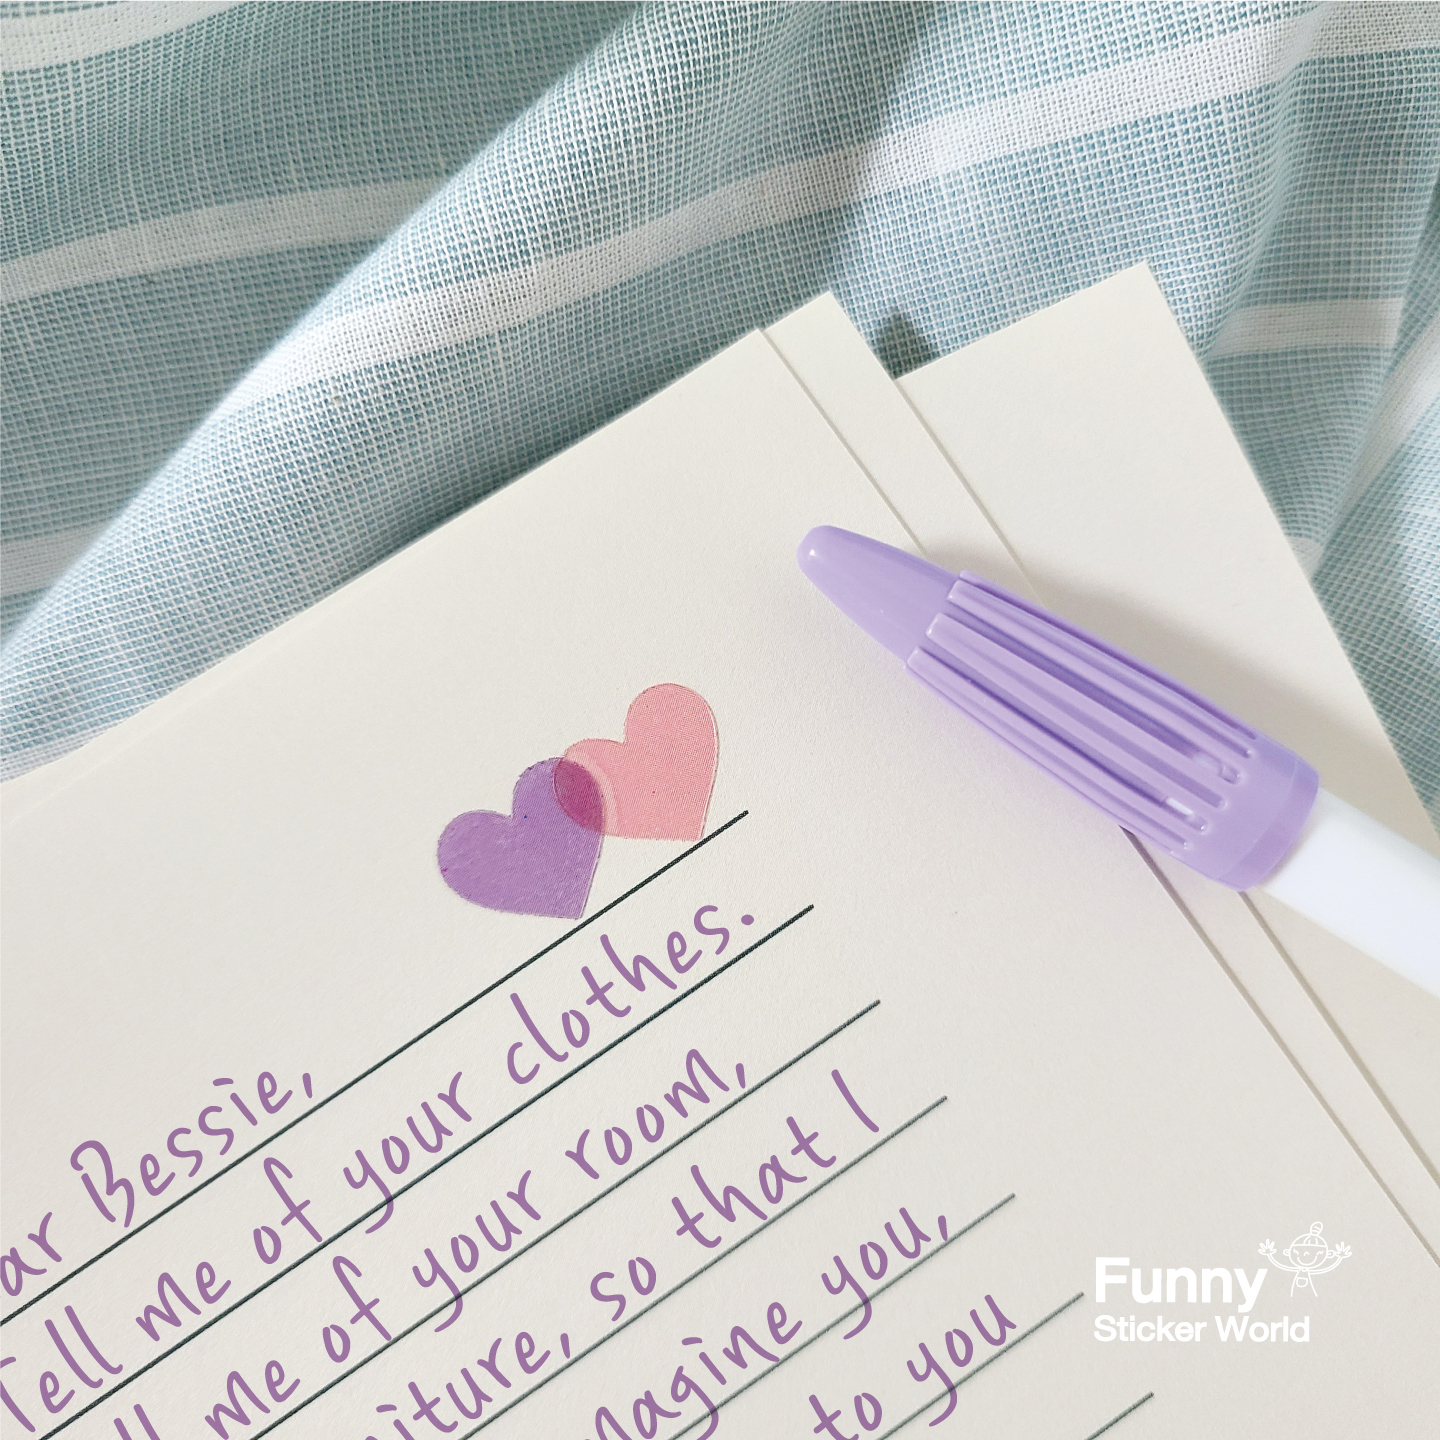 ar Bessie,
Tell me of your clothes.
ll me of your room,
niture, so that I
magine you,
to you
Funny
Sticker World